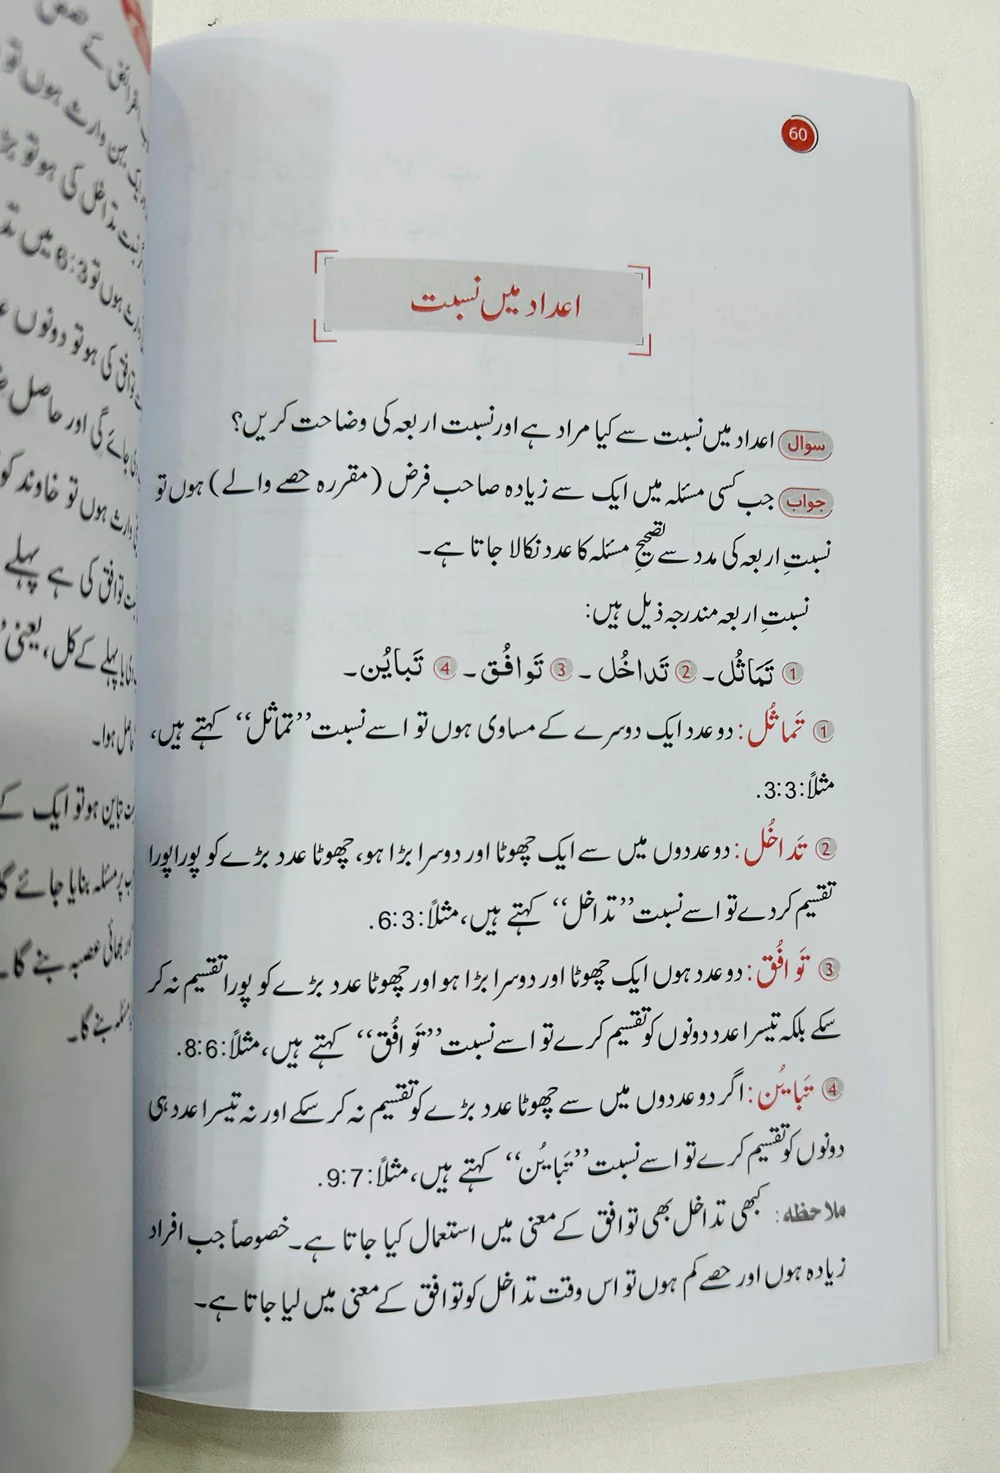 60
اعداد میں نسبت
سوال اعداد میں نسبت سے کیا مراد ہے اور نسبت اربعہ کی وضاحت کریں؟
جواب جب کسی مسئلہ میں ایک سے زیادہ صاحب فرض (مقررہ حصے والے) ہوں تو
نسبتِ اربعہ کی مدد سے تصحیحِ مسئلہ کا عدد نکالا جاتا ہے۔
نسبتِ اربعہ مندرجہ ذیل ہیں:
① تَمَاثُل۔ ② تَداخُل ۔ ③ تَوافُق۔ ④ تَبایُن۔
① تَماثُل: دو عدد ایک دوسرے کے مساوی ہوں تو اسے نسبت ’’تماثل‘‘ کہتے ہیں،
مثلاً: 3:3.
② تَداخُل: دو عددوں میں سے ایک چھوٹا اور دوسرا بڑا ہو، چھوٹا عدد بڑے کو پورا پورا
تقسیم کردے تو اسے نسبت ’’تداخل‘‘ کہتے ہیں، مثلاً: 6:3.
③ تَوافُق: دو عدد ہوں ایک چھوٹا اور دوسرا بڑا ہو اور چھوٹا عدد بڑے کو پورا تقسیم نہ کر
سکے بلکہ تیسرا عدد دونوں کو تقسیم کرے تو اسے نسبت ’’تَوافُق‘‘ کہتے ہیں، مثلاً: 8:6.
④ تَبایُن: اگر دو عددوں میں سے چھوٹا عدد بڑے کو تقسیم نہ کر سکے اور نہ تیسرا عدد ہی
دونوں کو تقسیم کرے تو اسے نسبت ’’تَبایُن‘‘ کہتے ہیں، مثلاً: 9:7.
ملاحظہ: کبھی تداخل بھی توافق کے معنی میں استعمال کیا جاتا ہے۔ خصوصاً جب افراد
زیادہ ہوں اور حصے کم ہوں تو اس وقت تداخل کو توافق کے معنی میں لیا جاتا ہے۔